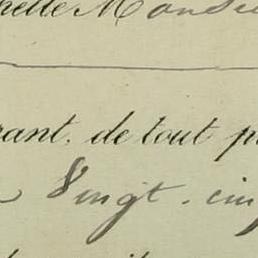 helle Monsieu
rant, de tout p
Vingt-cin